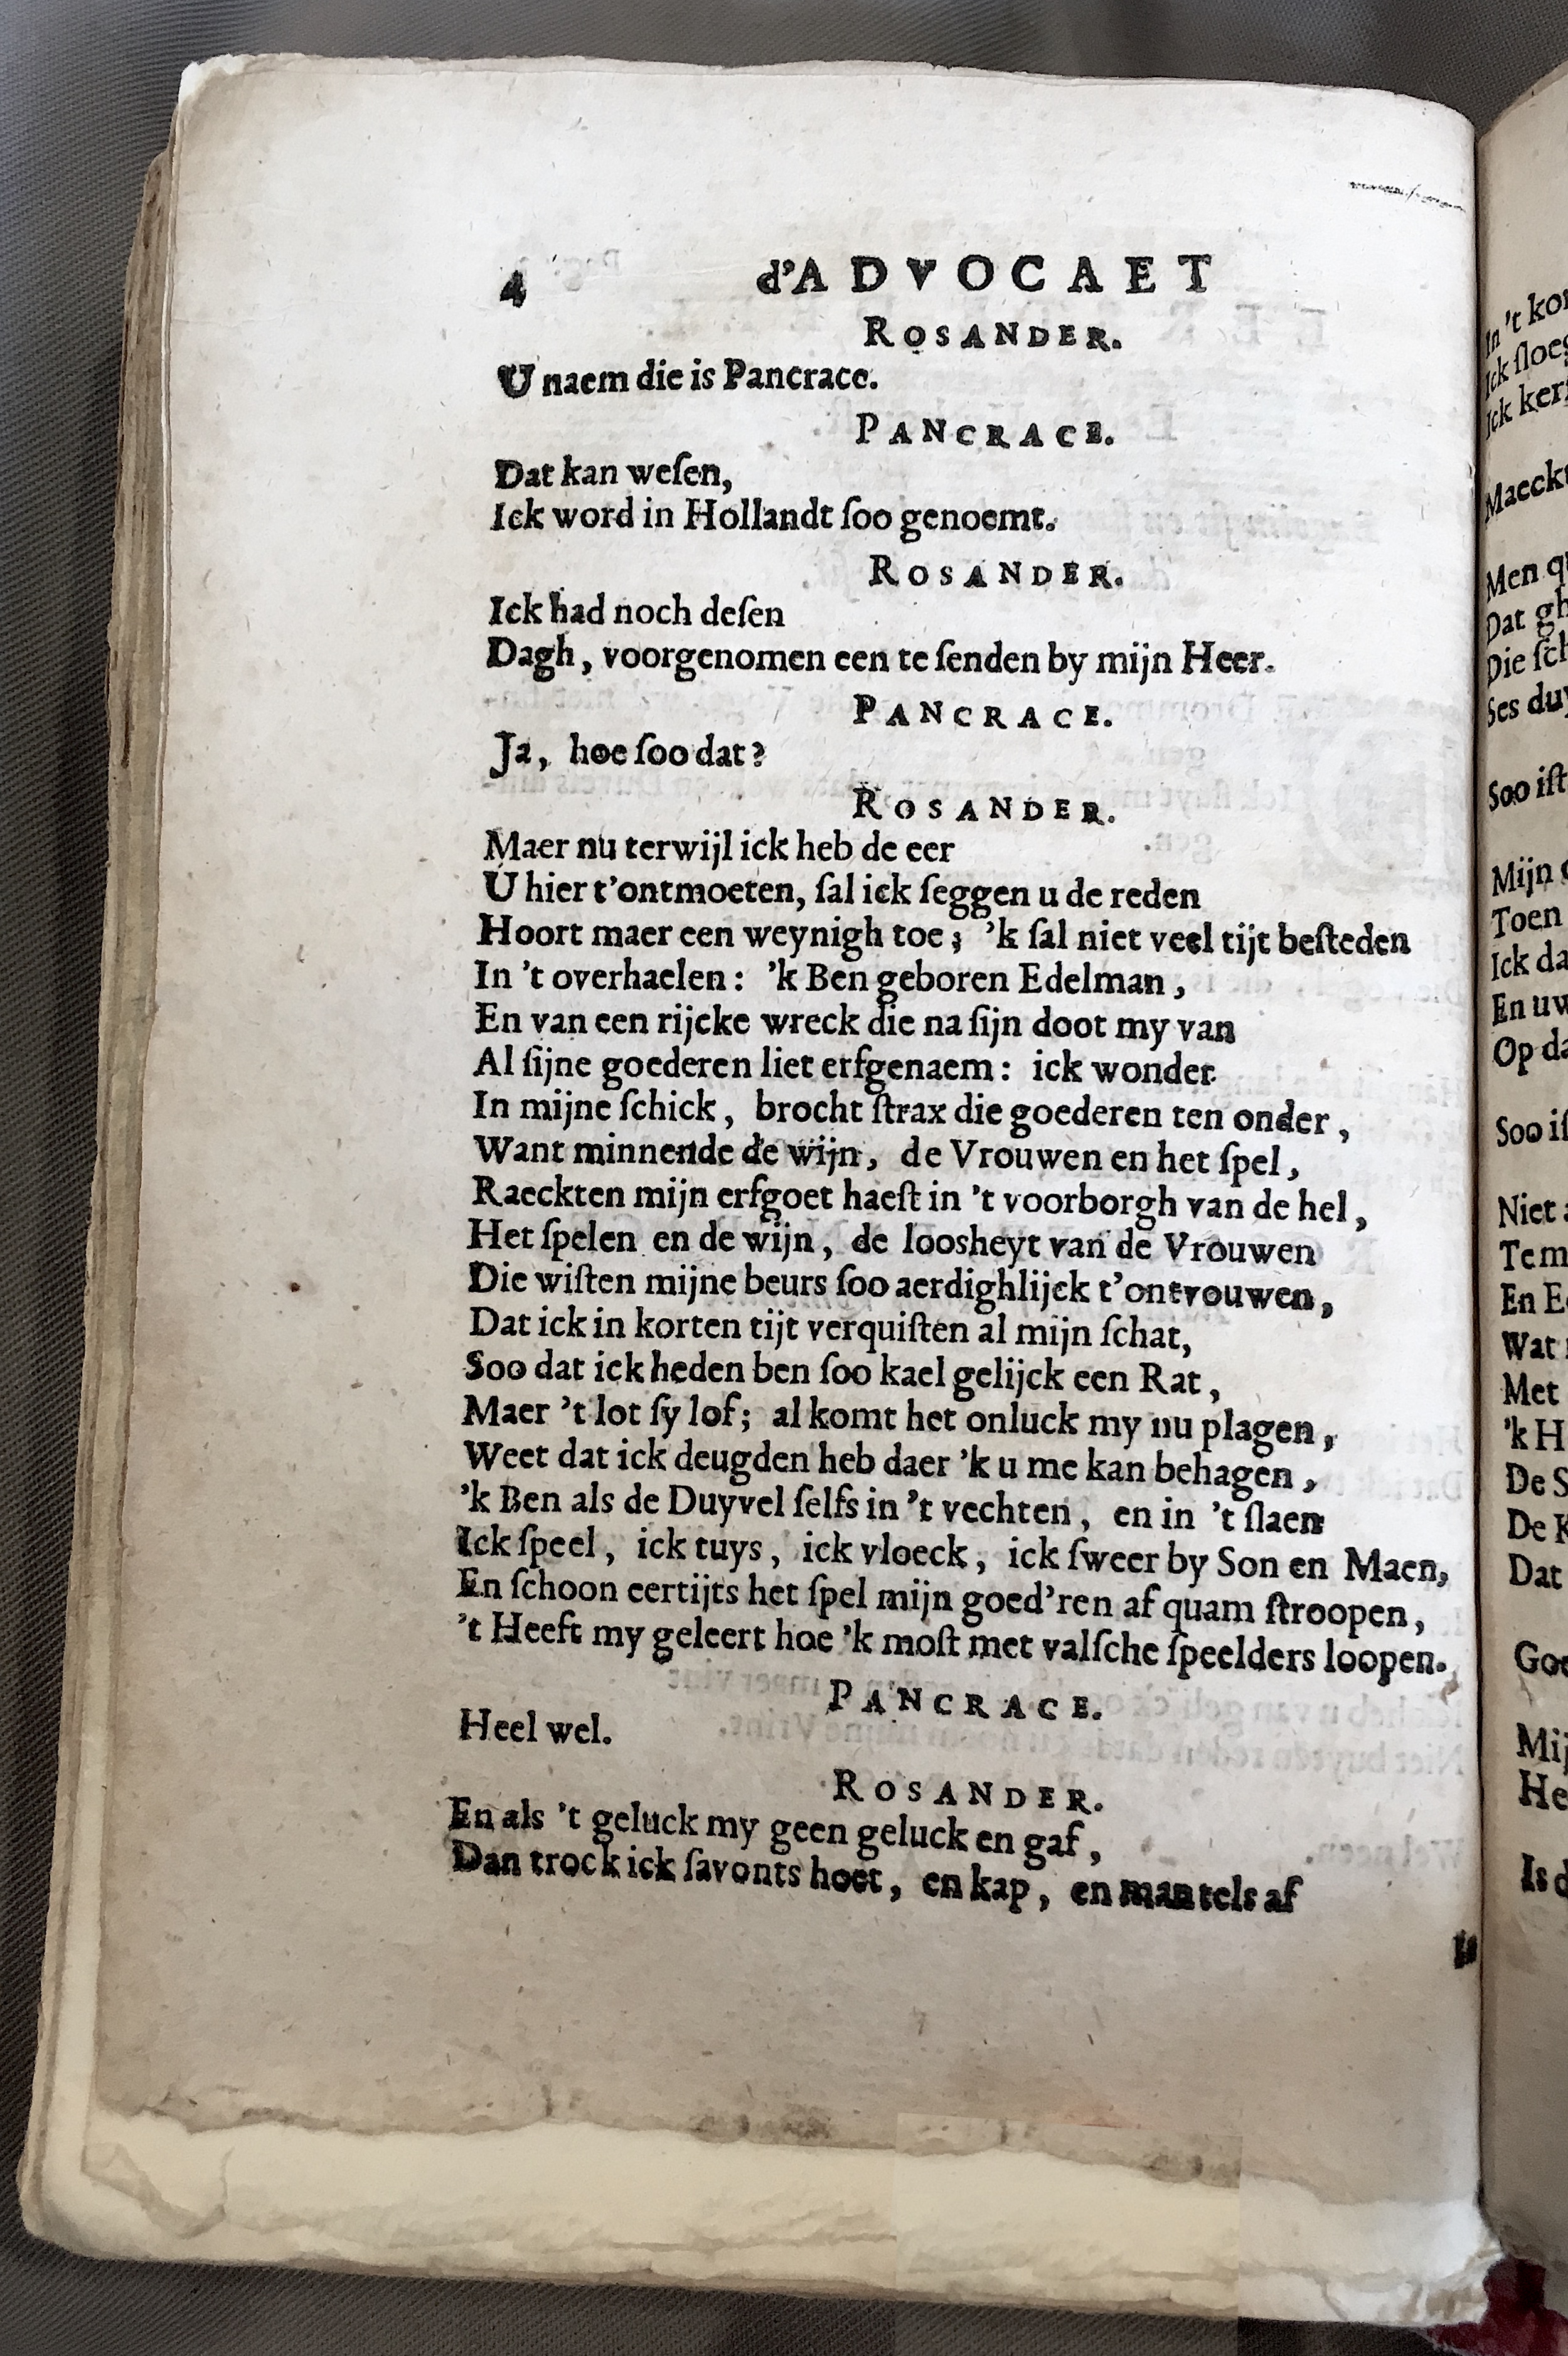 4 d'ADVOCAET
ROSANDER.
U naem die is Pancrace.
PANCRACE.
Dat kan weſen,
Ick word in Hollandt ſoo genoemt.
ROSANDER.
Ick had noch deſen
Dagh, voorgenomen een te ſenden by mijn Heer.
PANCRACE.
Ja, hoe ſoo dat?
ROSANDER.
Maer nu terwijl ick heb de eer
U hier t'ontmoeten, ſal ick ſeggen u de reden
Hoort maer een weynigh toe; 'k ſal niet veel tijt beſteden
In 't overhaelen: 'k Ben geboren Edelman,
En van een rijcke wreck die na ſijn doot my van
Al ſijne goederen liet erfgenaem: ick wonder
In mijne ſchick, brocht ſtrax die goederen ten onder,
Want minnende de wijn, de Vrouwen en het ſpel,
Raeckten mijn erfgoet haeſt in 't voorborgh van de hel,
Het ſpelen en de wijn, de loosheyt van de Vrouwen
Die wiſten mijne beurs ſoo aerdighlijck t'ontvouwen,
Dat ick in korten tijt verquiſten al mijn ſchat,
Soo dat ick heden ben ſoo kael gelijck een Rat,
Maer 't lot ſy lof; al komt het onluck my nu plagen,
Weet dat ick deugden heb daer 'k u me kan behagen,
'k Ben als de Duyvel ſelfs in 't vechten, en in 't ſlaen
Ick ſpeel, ick tuys, ick vloeck, ick ſweer by Son en Maen,
En ſchoon eertijts het ſpel mijn goed'ren af quam ſtroopen,
't Heeft my geleert hoe 'k moſt met valſche ſpeelders loopen.
PANCRACE.
Heel wel.
ROSANDER.
En als 't geluck my geen geluck en gaf,
Dan trock ick ſavonts hoet, en kap, en mantels af
In 't
Ick ſloeg
Men
Dat
Die
Ses
Soo iſt
Mijn
Toen
Ick
En uw
Op
Soo
Niet
En
Wat
Met
'k
De
De
Dat
Is